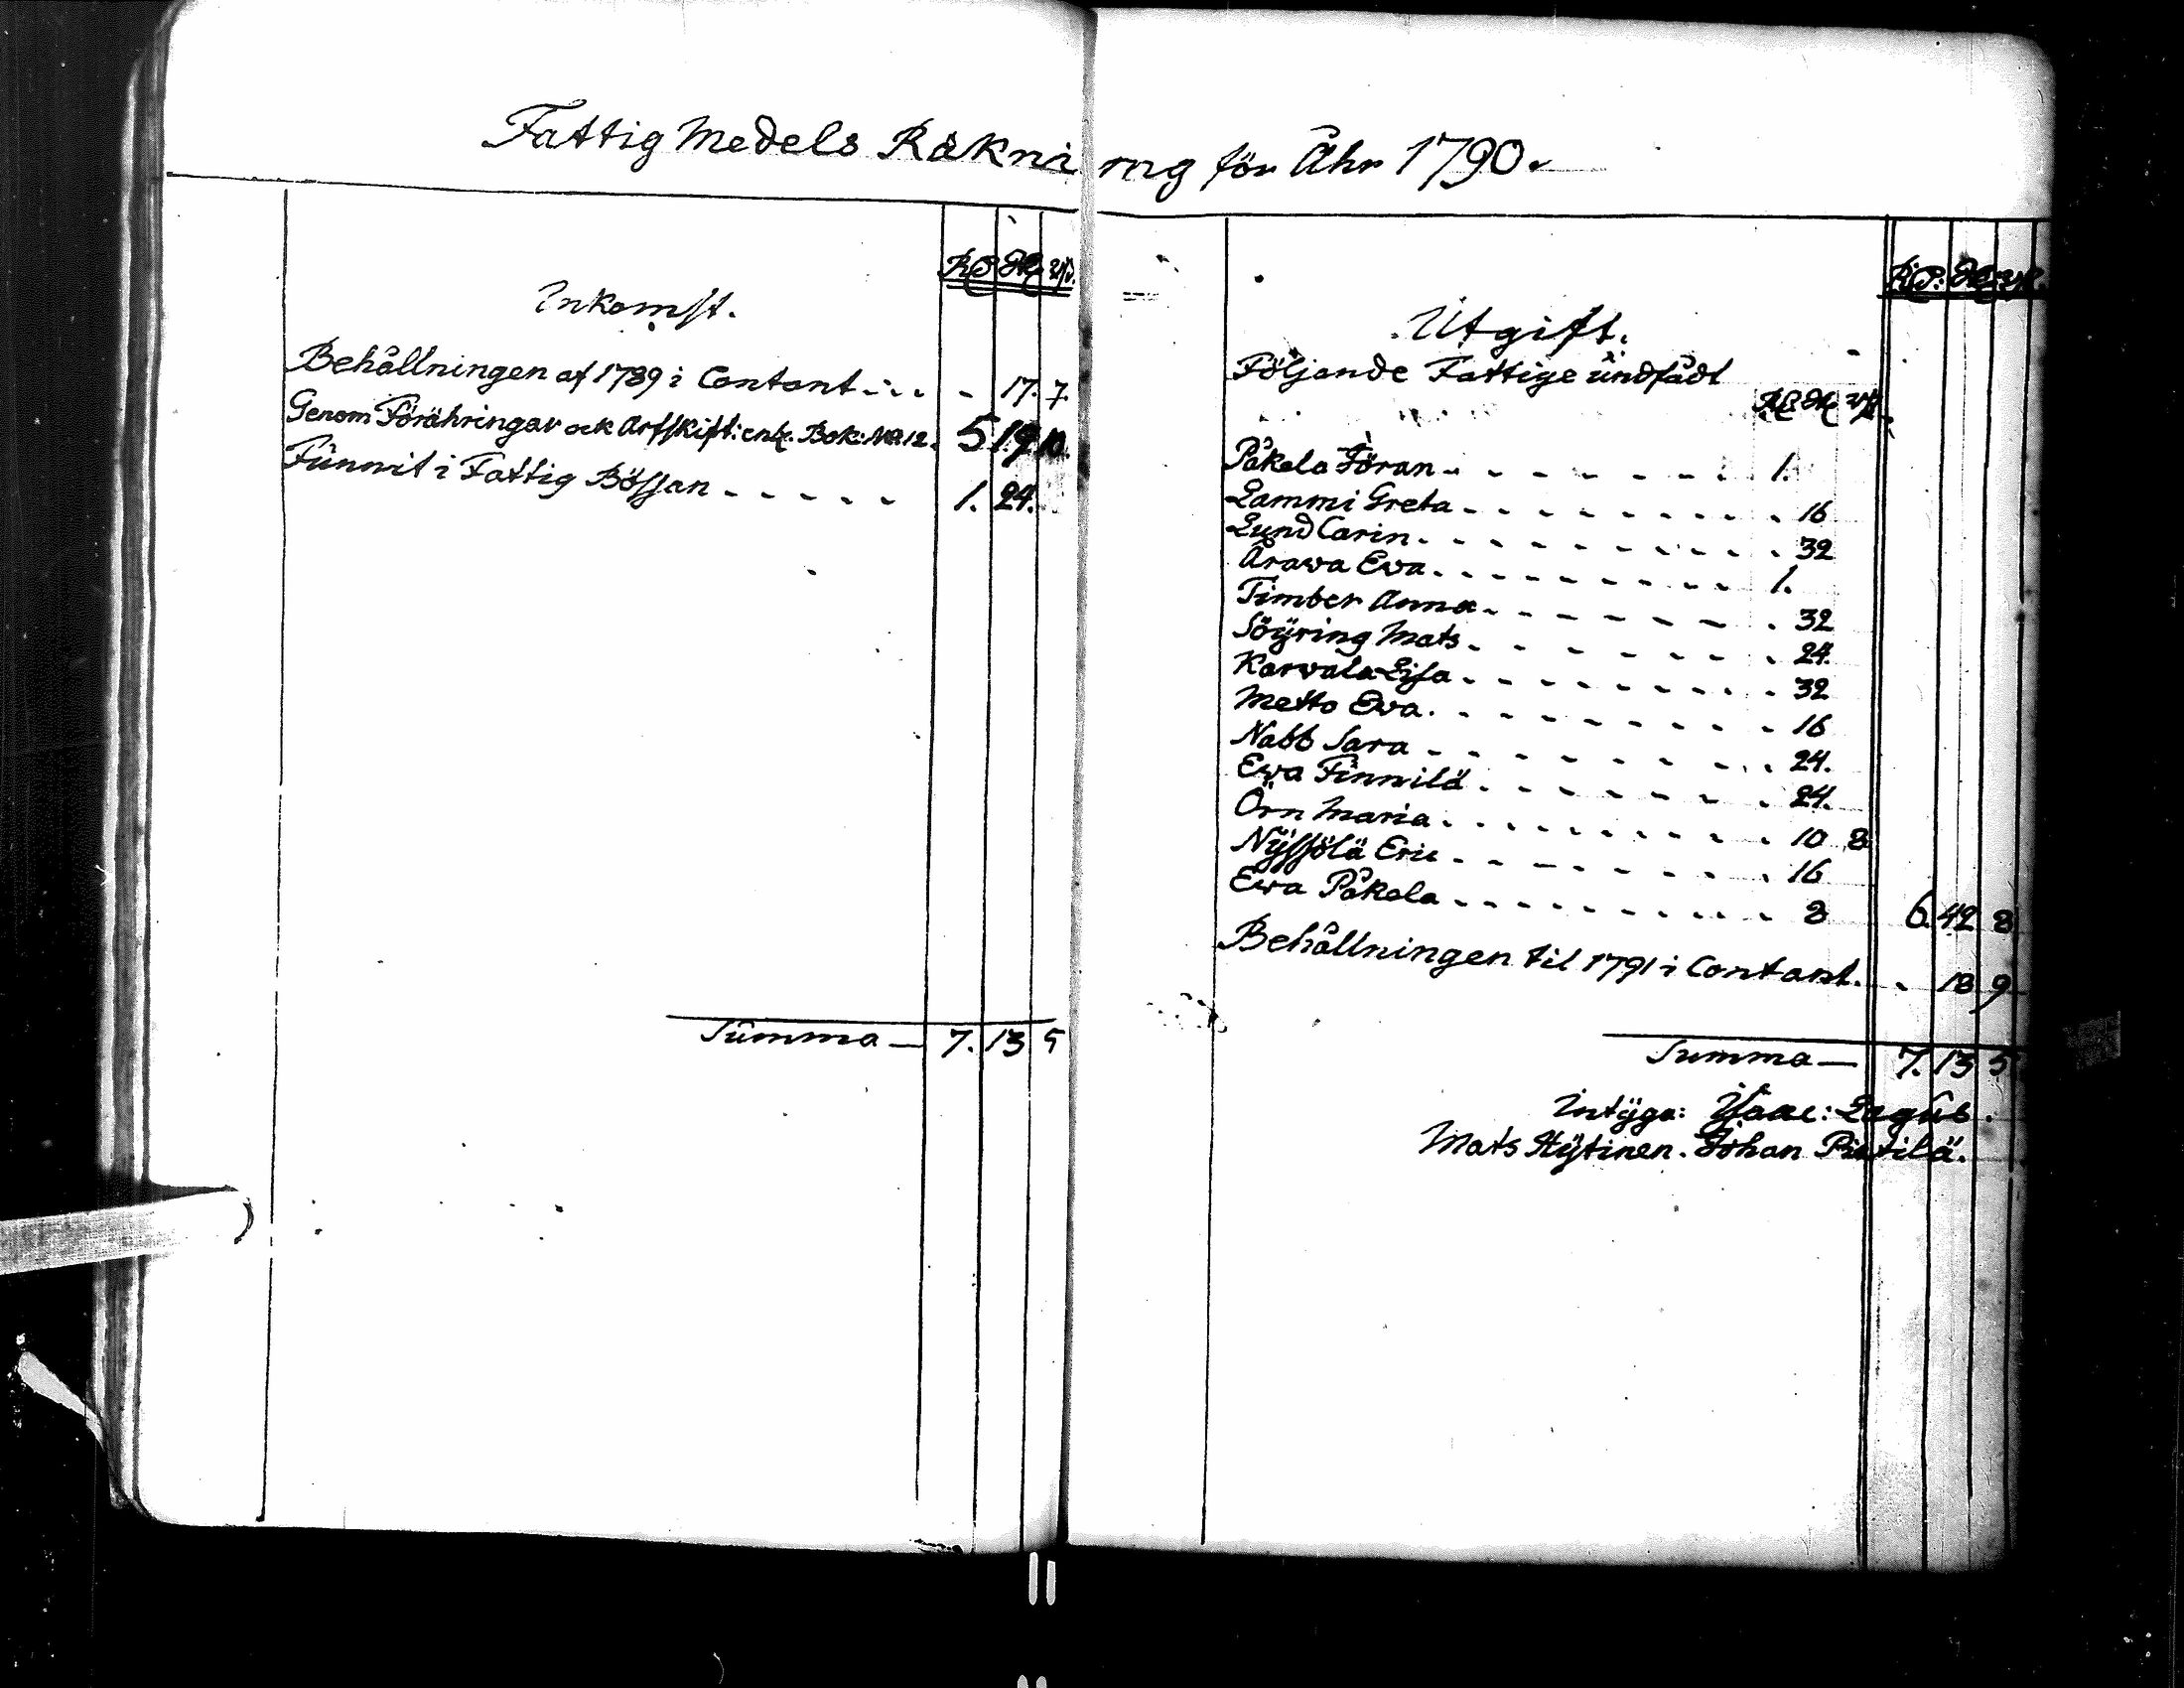 Fattig Medels Räkning för Åhr 1790.
Inkomst.
Behållningen af 1789 i Contant - 17. 7.
Genom Förähringar ock Arfskift: enl. Bok: No 12. 5 19 10.
Funnit i Fattig Bössan 1. 24.
Summa 7. 13 5
Utgift.
Följande Fattige undfådt
Påkela Jöran 1.
Lammi Greta 16
Lund Carin 32
Arawa Ewa 1.
Timber Anna 32
Söyring Mats 24.
Karvala Lisa 32
Metto Ewa 16
Nabb Sara 24.
Ewa Finnilä 24.
Örn Maria 10 8
Nyssölä Eric 16
Ewa Påkela 8 6. 42 8
Behållningen til 1791 i Contant - 18 9
Summa 7. 13 5
Intyga: Isaac: Legus.
Mats Hytinen. Johan Pietilä.